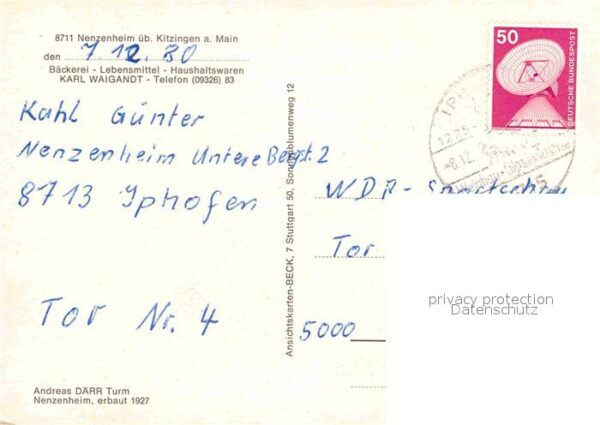 8711 Nenzenheim üb. Kitzingen a. Main
den 7 12. 80
Bäckerei - Lebensmittel - Haushaltswaren
KARL WAIGANDT - Telefon (09326) 83
Kahl Günter
Nenzenheim Untere Bergst. 2
8713 Iphofen
Tor Nr. 4
Andreas DÄRR Turm
Nenzenheim, erbaut 1927
Ansichtskarten-BECK, 7 Stuttgart 50, Sonnenblumenweg 12
50
DEUTSCHE BUNDESPOST
-8.12.
WDR-
Tor
5000
privacy protection
Datenschutz